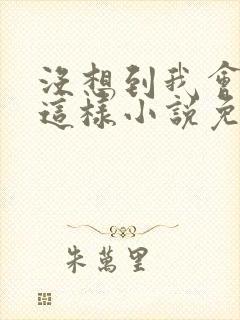 沒想到我會
這樣小說免
朱萬里